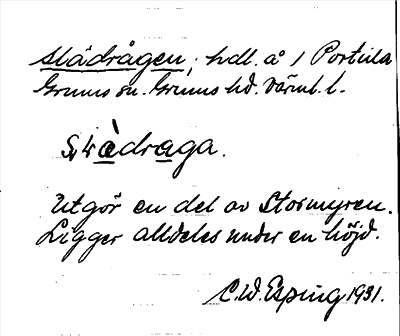 Slådrågen, hdl. å 1 Portila
Grums sn. Grums hd. Värml. l.
Slàdraga.
Utgör en del av Stormyren.
Ligger alldeles under en höjd.
C.W. Esping 1931.